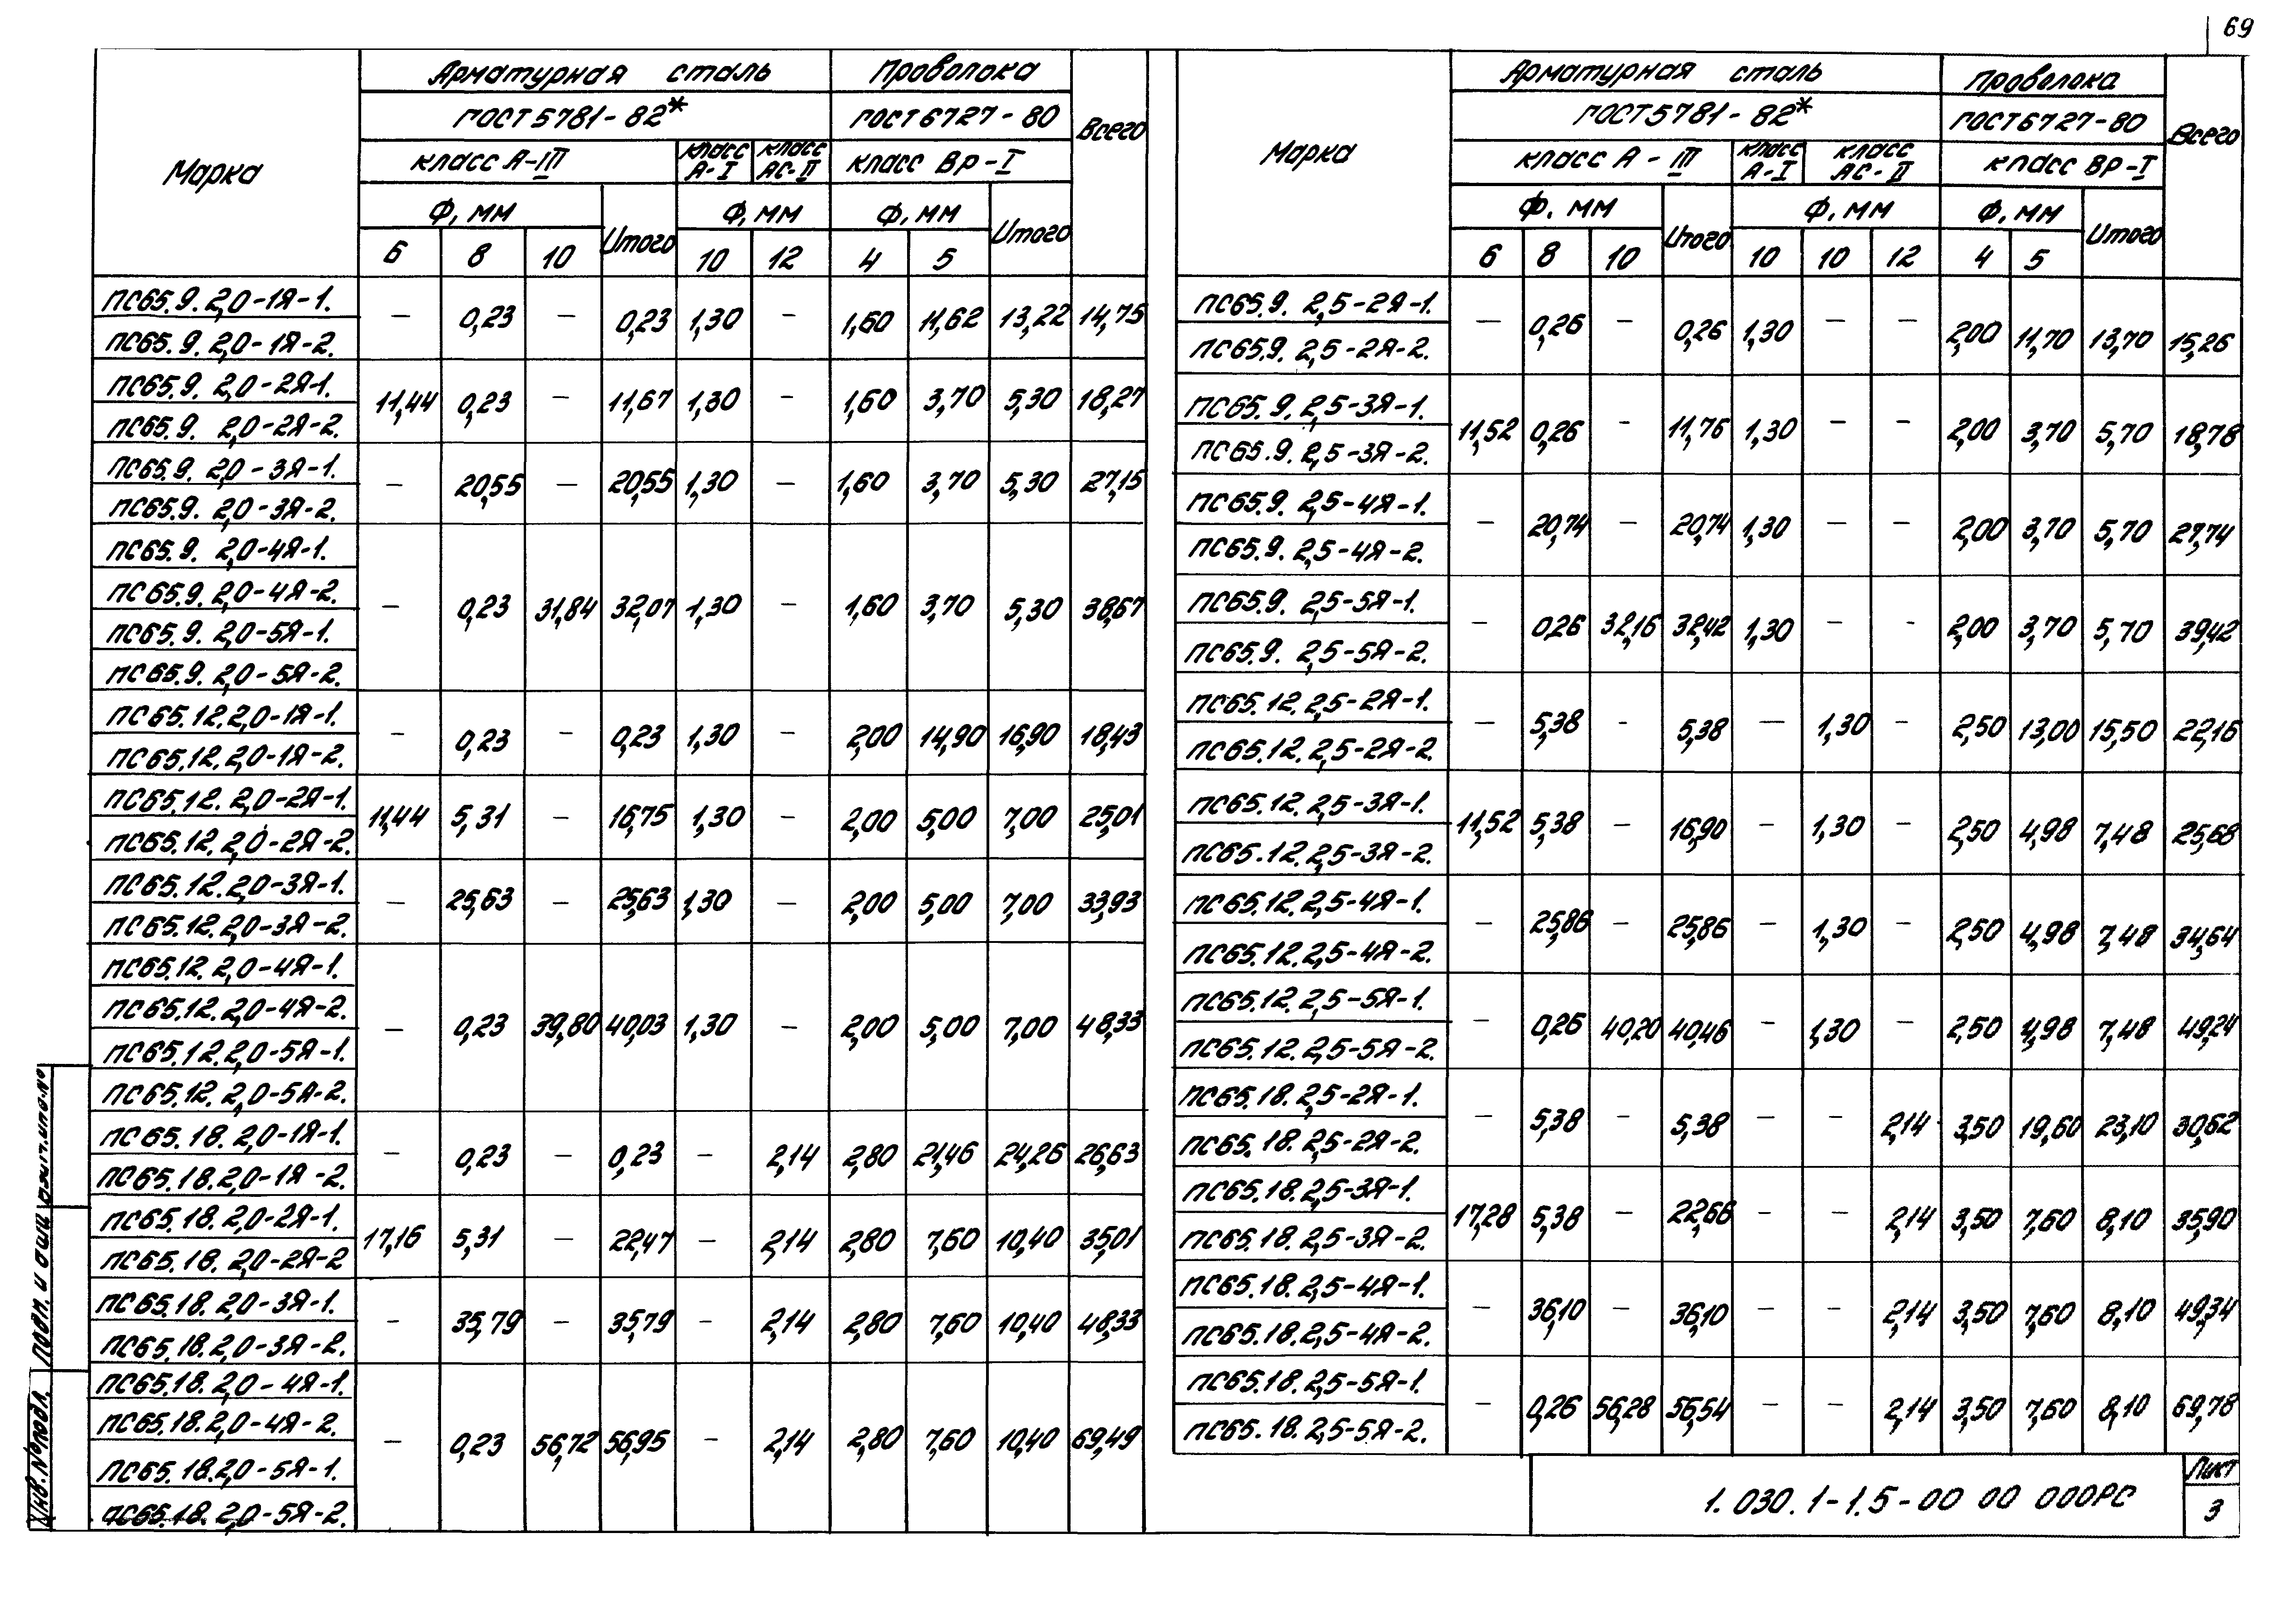 69
Марка
Арматурная сталь
Проволока
Всего
ГОСТ 5781-82*
ГОСТ 6727-80
класс А-III
класс А-I
класс АС-II
класс Вр-I
Ф, мм
Итого
Ф, мм
Ф, мм
Итого
6 8 10 10 12 4 5
ПС65.9.2,0-1Я-1.
ПС65.9.2,0-1Я-2.
— 0,23 — 0,23 1,30 — 1,60 11,62 13,22 14,75
ПС65.9.2,0-2Я-1.
ПС65.9.2,0-2Я-2.
11,44 0,23 — 11,67 1,30 — 1,60 3,70 5,30 18,27
ПС65.9.2,0-3Я-1.
ПС65.9.2,0-3Я-2.
— 20,55 — 20,55 1,30 — 1,60 3,70 5,30 27,15
ПС65.9.2,0-4Я-1.
ПС65.9.2,0-4Я-2.
ПС65.9.2,0-5Я-1.
ПС65.9.2,0-5Я-2.
— 0,23 31,84 32,07 1,30 — 1,60 3,70 5,30 38,67
ПС65.12.2,0-1Я-1.
ПС65.12.2,0-1Я-2.
— 0,23 — 0,23 1,30 — 2,00 14,90 16,90 18,43
ПС65.12.2,0-2Я-1.
ПС65.12.2,0-2Я-2.
11,44 5,31 — 16,75 1,30 — 2,00 5,00 7,00 25,01
ПС65.12.2,0-3Я-1.
ПС65.12.2,0-3Я-2.
— 25,63 — 25,63 1,30 — 2,00 5,00 7,00 33,93
ПС65.12.2,0-4Я-1.
ПС65.12.2,0-4Я-2.
ПС65.12.2,0-5Я-1.
ПС65.12.2,0-5Я-2.
— 0,23 39,80 40,03 1,30 — 2,00 5,00 7,00 48,33
ПС65.18.2,0-1Я-1.
ПС65.18.2,0-1Я-2.
— 0,23 — 0,23 — 2,14 2,80 21,46 24,26 26,63
ПС65.18.2,0-2Я-1.
ПС65.18.2,0-2Я-2
17,16 5,31 — 22,47 — 2,14 2,80 7,60 10,40 35,01
ПС65.18.2,0-3Я-1.
ПС65.18.2,0-3Я-2.
— 35,79 — 35,79 — 2,14 2,80 7,60 10,40 48,33
ПС65.18.2,0-4Я-1.
ПС65.18.2,0-4Я-2.
ПС65.18.2,0-5Я-1.
ПС65.18.2,0-5Я-2.
— 0,23 56,72 56,95 — 2,14 2,80 7,60 10,40 69,49
Марка
Арматурная сталь
Проволока
Всего
ГОСТ 5781-82*
ГОСТ 6727-80
класс А-III
класс А-I
класс АС-II
класс Вр-I
Ф, мм
Итого
Ф, мм
Ф, мм
Итого
6 8 10 10 10 12 4 5
ПС65.9.2,5-2Я-1.
ПС65.9.2,5-2Я-2.
— 0,26 — 0,26 1,30 — — 2,00 11,70 13,70 15,26
ПС65.9.2,5-3Я-1.
ПС65.9.2,5-3Я-2.
11,52 0,26 - 11,76 1,30 — — 2,00 3,70 5,70 18,78
ПС65.9.2,5-4Я-1.
ПС65.9.2,5-4Я-2.
— 20,74 — 20,74 1,30 — — 2,00 3,70 5,70 27,74
ПС65.9.2,5-5Я-1.
ПС65.9.2,5-5Я-2.
— 0,26 32,16 32,42 1,30 — - 2,00 3,70 5,70 39,42
ПС65.12.2,5-2Я-1.
ПС65.12.2,5-2Я-2.
— 5,38 - 5,38 — 1,30 — 2,50 13,00 15,50 22,16
ПС65.12.2,5-3Я-1.
ПС65.12.2,5-3Я-2.
11,52 5,38 — 16,90 — 1,30 — 2,50 4,98 7,48 25,68
ПС65.12.2,5-4Я-1.
ПС65.12.2,5-4Я-2.
— 25,86 — 25,86 — 1,30 — 2,50 4,98 7,48 34,64
ПС65.12.2,5-5Я-1.
ПС65.12.2,5-5Я-2.
— 0,26 40,20 40,46 — 1,30 — 2,50 4,98 7,48 49,24
ПС65.18.2,5-2Я-1.
ПС65.18.2,5-2Я-2.
— 5,38 — 5,38 — — 2,14 3,50 19,60 23,10 30,62
ПС65.18.2,5-3Я-1.
ПС65.18.2,5-3Я-2.
17,28 5,38 — 22,66 — — 2,14 3,50 7,60 8,10 35,90
ПС65.18.2,5-4Я-1.
ПС65.18.2,5-4Я-2.
— 36,10 — 36,10 — — 2,14 3,50 7,60 8,10 49,34
ПС65.18.2,5-5Я-1.
ПС65.18.2,5-5Я-2.
— 0,26 56,28 56,54 — — 2,14 3,50 7,60 8,10 69,78
1.030.1-1.5-00 00 000РС
Лист
3
Инв.№подл.